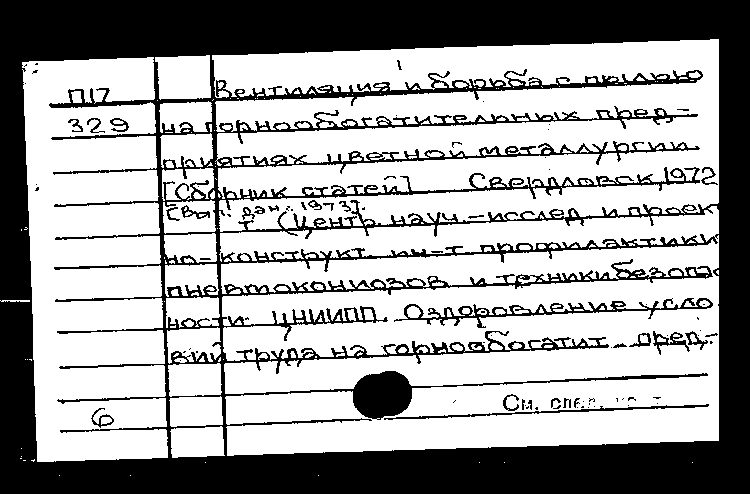 П17 Вентиляция и борьба с пылью
329 на горнообогатительных пред-
приятиях цветной металлургии.
[Сборник статей] Свердловск, 1972
[Вып. дан.: 1973].
(Центр. науч.-исслед. и проект
но-конструкт. ин-т профилактики
пневмокониозов и техники безопас
ности ЦНИИПП. Оздоровление усло
вий труда на горнообогатит. пред-
6 См. след.